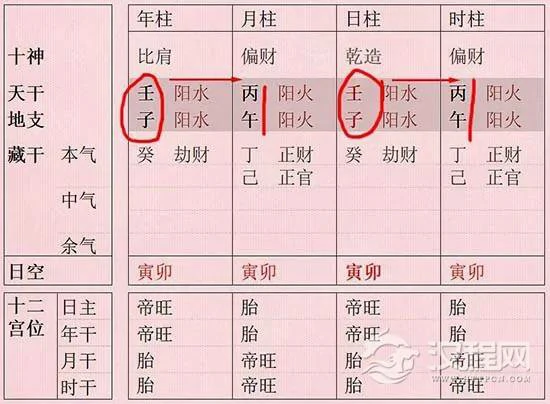 年柱 月柱 日柱 时柱
十神 比肩 偏财 乾造 偏财
天干 壬 阳水 丙 阳火 壬 阳水 丙 阳火
地支 子 阳水 午 阳火 子 阳水 午 阳火
藏干 本气 癸 劫财 丁 正财 癸 劫财 丁 正财
己 正官 己 正官
中气
余气
日空 寅卯 寅卯 寅卯 寅卯
十二 日主 帝旺 胎 帝旺 胎
宫位 年干 帝旺 胎 帝旺 胎
月干 胎 帝旺 胎 帝旺
时干 胎 帝旺 胎 帝旺
汉程网